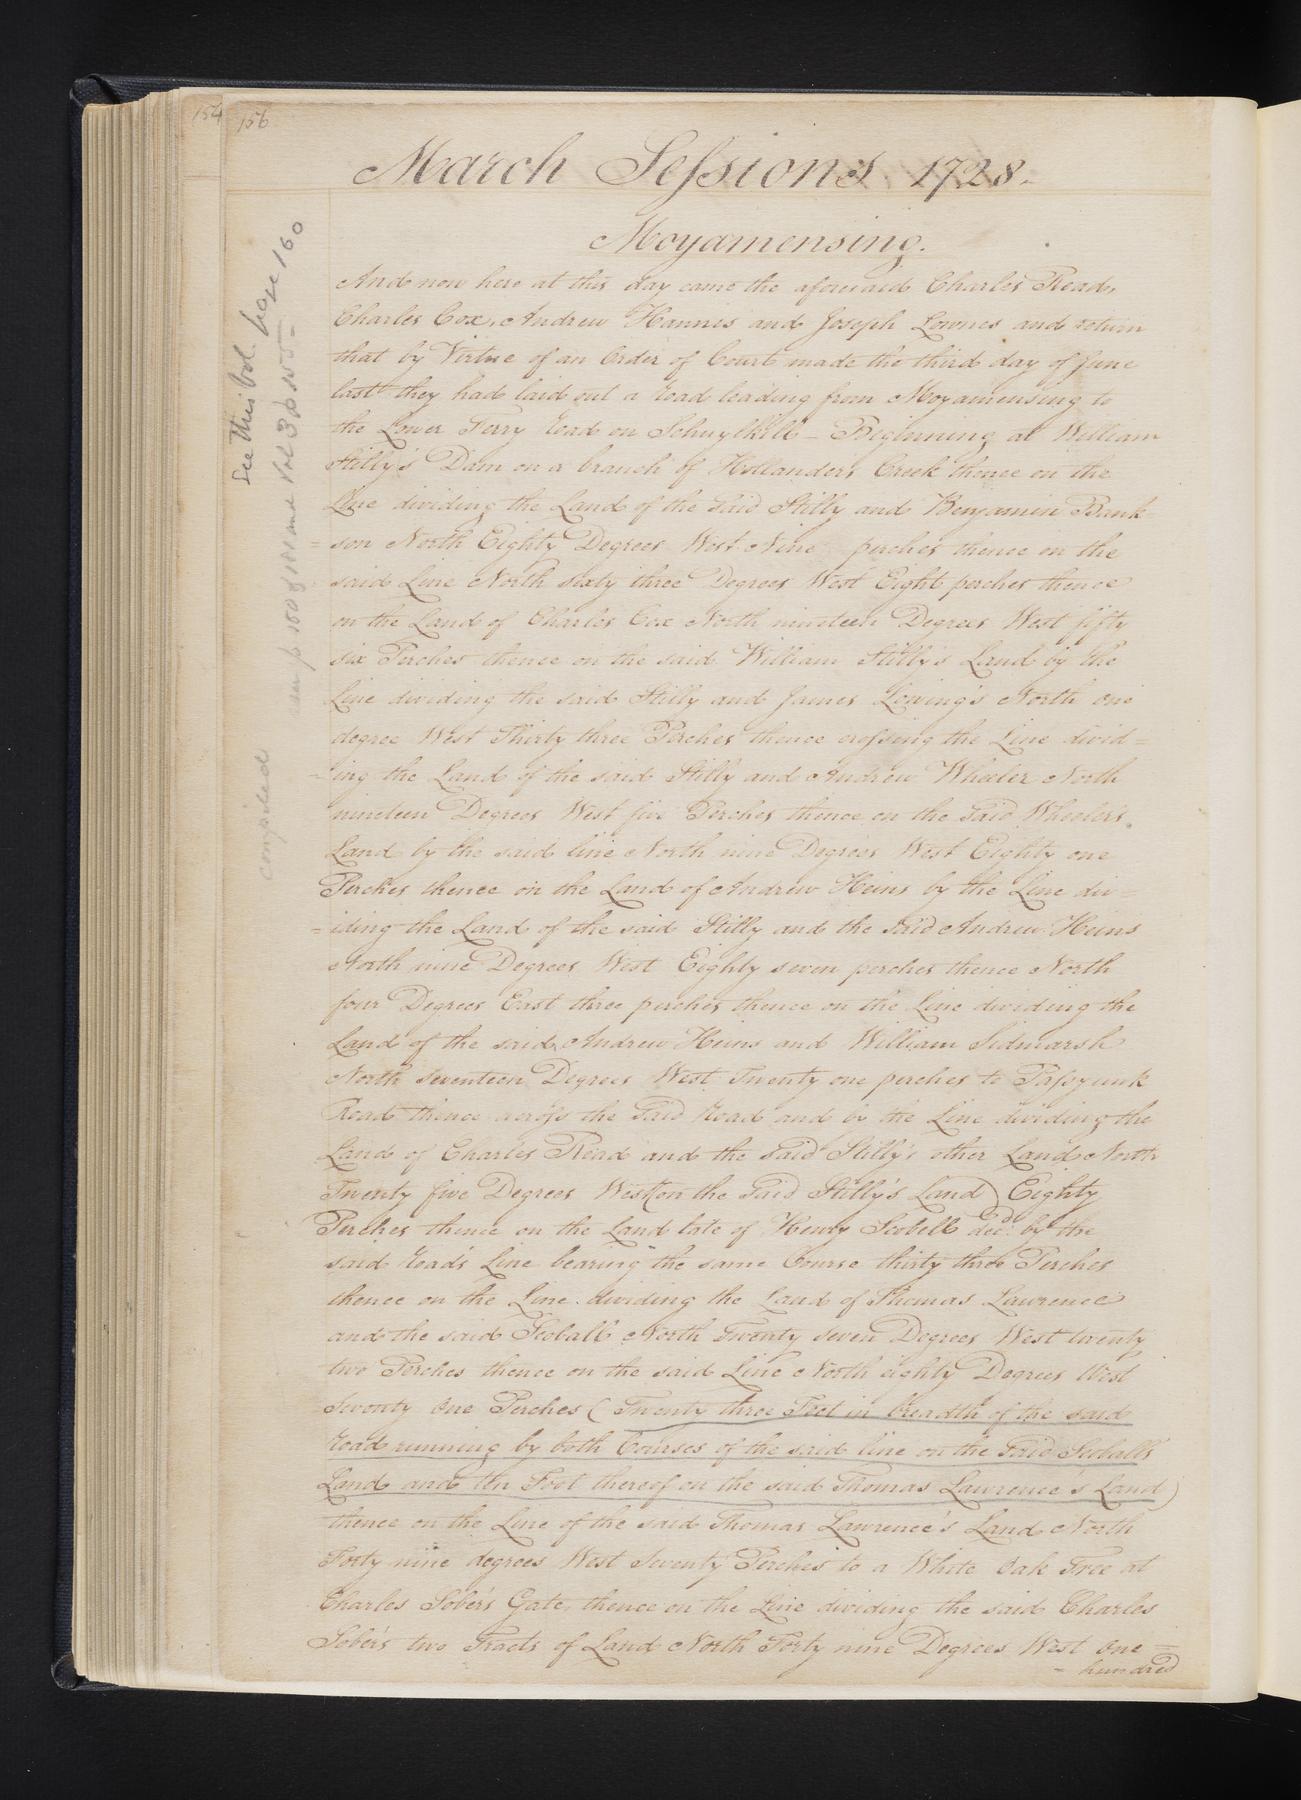 154 156
March Sessions 1728.
Moyamensing.
And now here at this day came the aforesaid Charles Read,
Charles Cox, Andrew Hannes and Joseph Lownes and return
that by Virtue of an Order of Court made the third day of June
last they had laid out a road leading from Moyamensing to
the Lower Ferry road on Schuylkill – Beginning at William
Stilly's Dam on a branch of Hollanders Creek thence on the
Line dividing the Land of the said Stilly and Benjamin Bank
= son North Eighty Degrees West Nine perches thence on the
said Line North sixty three Degrees West Eight perches thence
on the Land of Charles Cox North nineteen Degrees West fifty
six Perches thence on the said William Stilly's Land by the
Line dividing the said Stilly and James Lowing's North one
degree West Thirty three Perches thence crossing the Line divid=
=ing the Land of the said Stilly and Andrew Wheeler North
nineteen Degrees West five Perches thence on the said Wheeler's
Land by the said line North nine Degrees West Eighty one
Perches thence on the Land of Andrew Heins by the Line div=
=iding the Land of the said Stilly and the said Andrew Heins
North nine Degrees West Eighty seven perches thence North
four Degrees East three perches thence on the Line dividing the
Land of the said Andrew Heins and William Sidmarsh
North Seventeen Degrees West Twenty one perches to Passyunk
Road thence across the said road and by the Line dividing the
Land of Charles Read and the said Stilly's other Land North
Twenty five Degrees West (on the said Stilly's Land) Eighty
Perches thence on the Land late of Henry Scobell dec.d by the
said road's Line bearing the same Course thirty three Perches
thence on the Line dividing the Land of Thomas Lawrence
and the said Scoball North Twenty seven Degrees West twenty
two Perches thence on the said Line North eighty Degrees West
Seventy one Perches (Twenty three Feet in breadth of the said
road running by both Courses of the said line on the said Scoballs
Land and ten Foot thereof on the said Thomas Lawrence's Land)
thence on the Line of the said Thomas Lawrence's Land North
Forty nine degrees West Seventy Perches to a White Oak Tree at
Charles Sober's Gate, thence on the Line dividing the said Charles
Sober's two Tracts of Land North Forty nine Degrees West one =
- hundred
See this vol. page 160
compiled